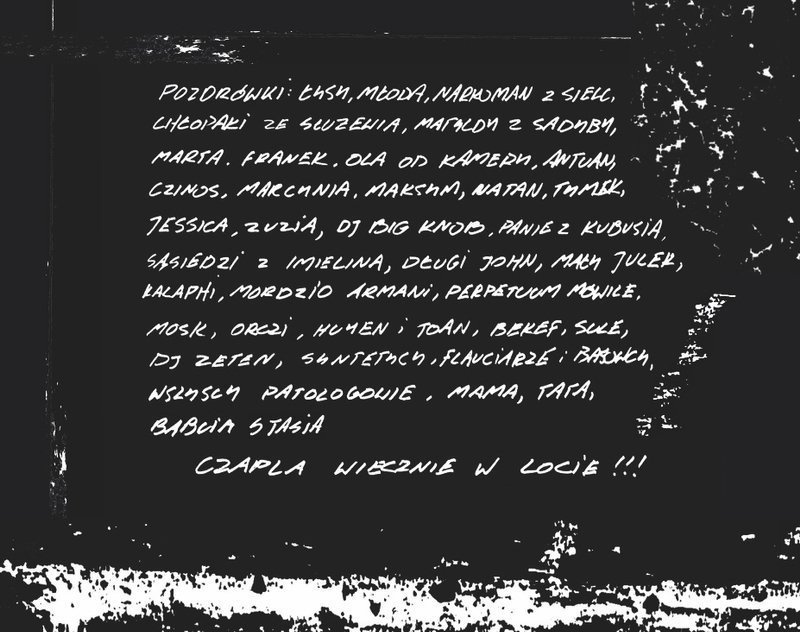 POZDRÓWKI: ŁYSY, MŁODA, NARKOMAN Z SIELC,
CHŁOPAKI ZE SŁUŻEWIA, MATYLDY Z SADYBY,
MARTA, FRANEK, OLA OD KAMERY, ANTUAN,
CZINOS, MARCYNIA, MAKSYM, NATAN, TYMEK,
JESSICA, ZUZIA, DJ BIG KNOB, PANIE Z KUBUSIA,
SĄSIEDZI Z IMIELINA, DŁUGI JOHN, MAŁY JULEK,
KALAPHI, MORDZIO ARMANI, PERPETUUM MOWILE,
MOSK, ORCZI, HUYEN i TOAN, BEKEF, SULE,
DJ ZETEN, SYNTETYCY, FLAUCIARZE i
WSZYSCY PATOLOGOWIE, MAMA, TATA,
BABCIA STASIA
CZAPLA WIECZNIE W LOCIE !!!